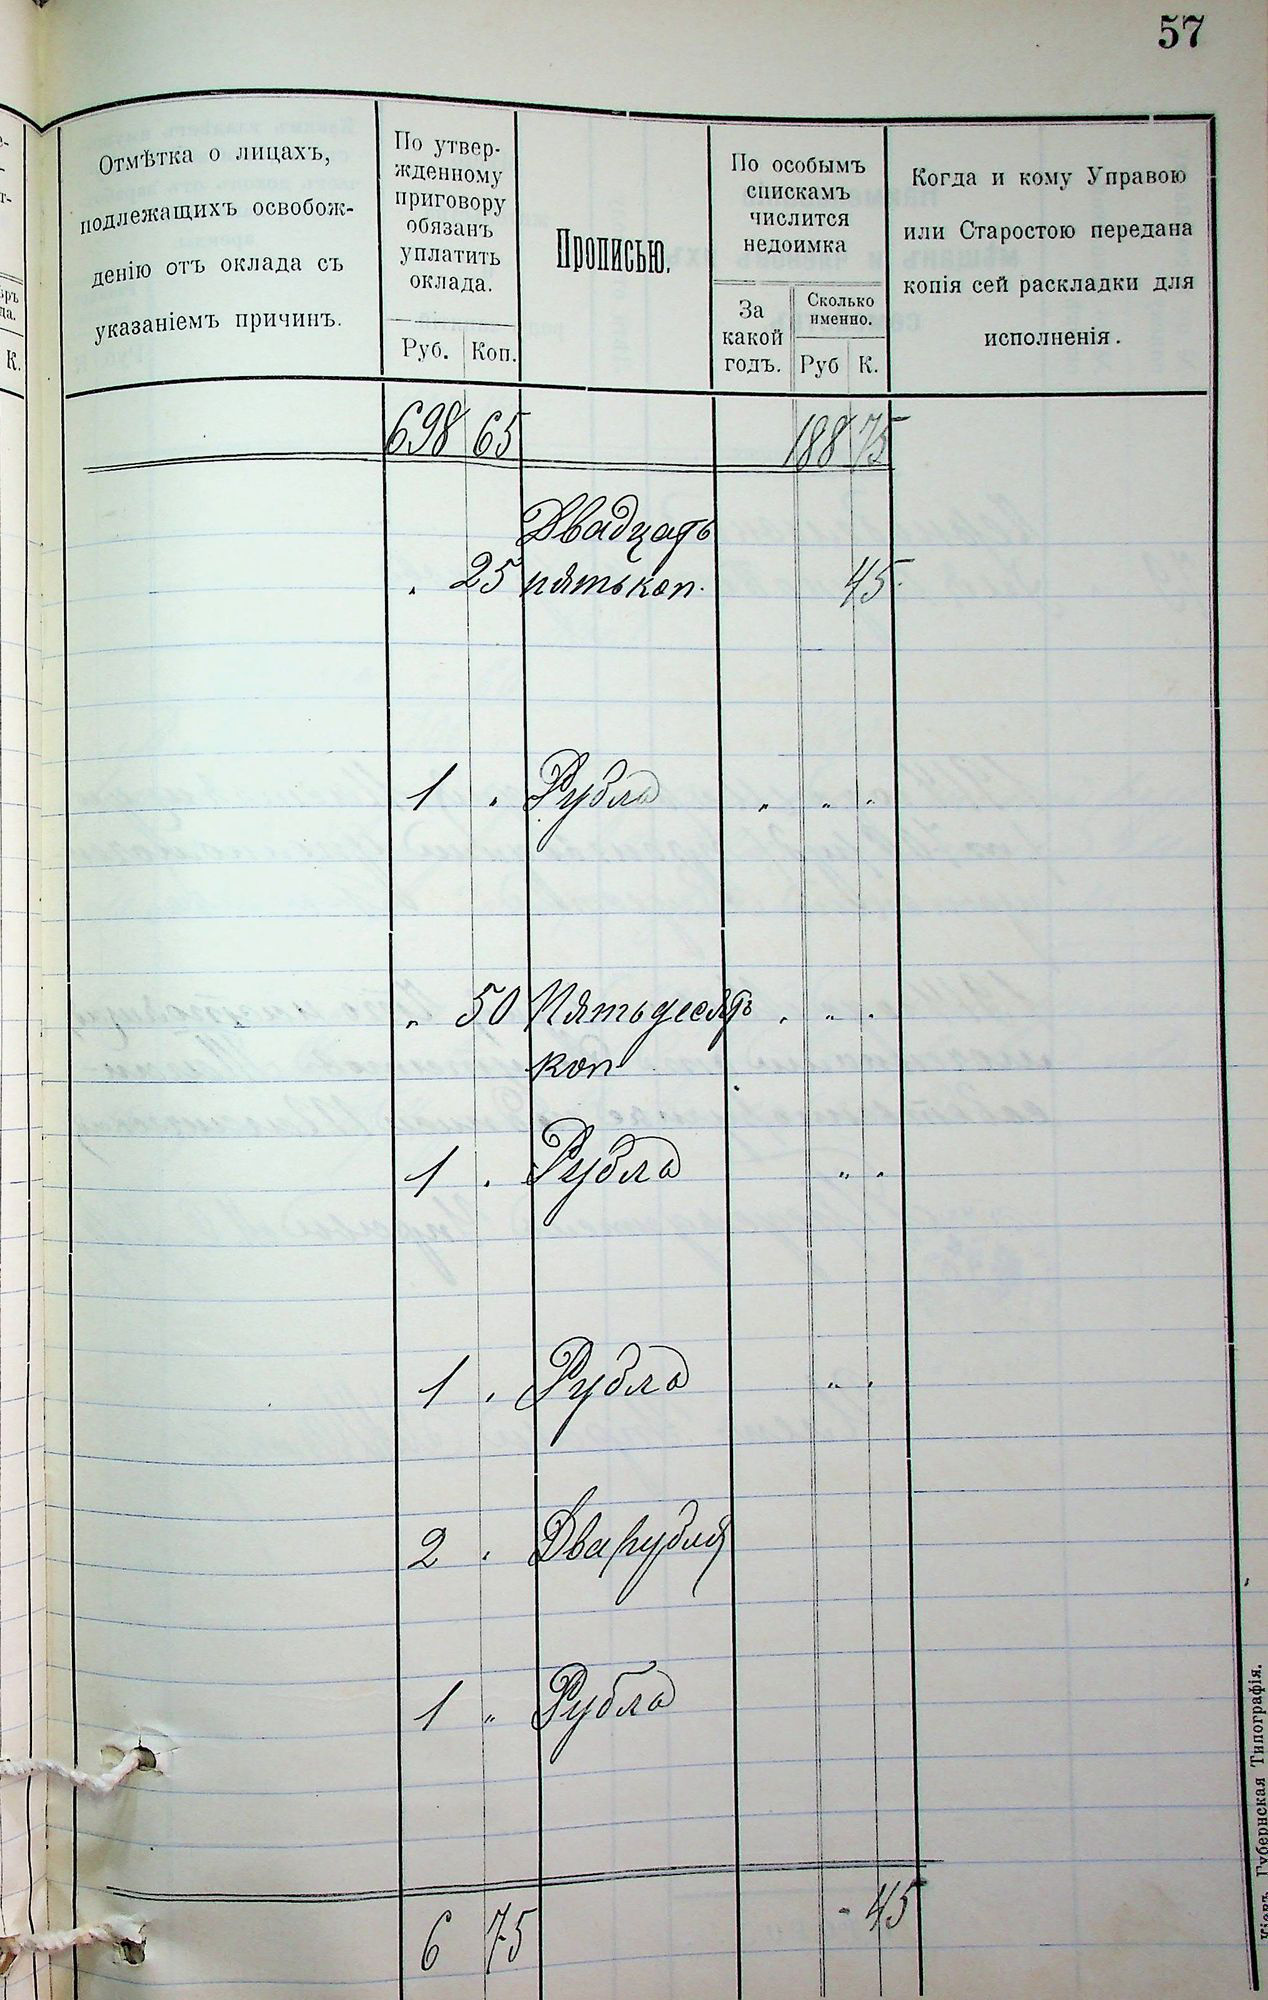 57
Отмѣтка о лицахъ,
подлежащихъ освобож-
денію отъ оклада съ
указаніемъ причинъ.
По утвер-
жденному
приговору
обязанъ
уплатить
оклада.
Руб. Коп.
Прописью.
По особымъ
спискамъ
числится
недоимка
За
какой
годъ.
Сколько
именно.
Руб К.
Когда и кому Управою
или Старостою передана
копія сей раскладки для
исполненія.
К.
698 65 188 75
Двадцать
" 25 пять коп. 45
1 " Рубль " " "
" 50 Пятьдесятъ " " "
коп
1 " Рубль " "
1 " Рубль " "
2 " Два рубля
1 " Рубль
6 75 - 45
Кіевъ. Губернская Типографія.